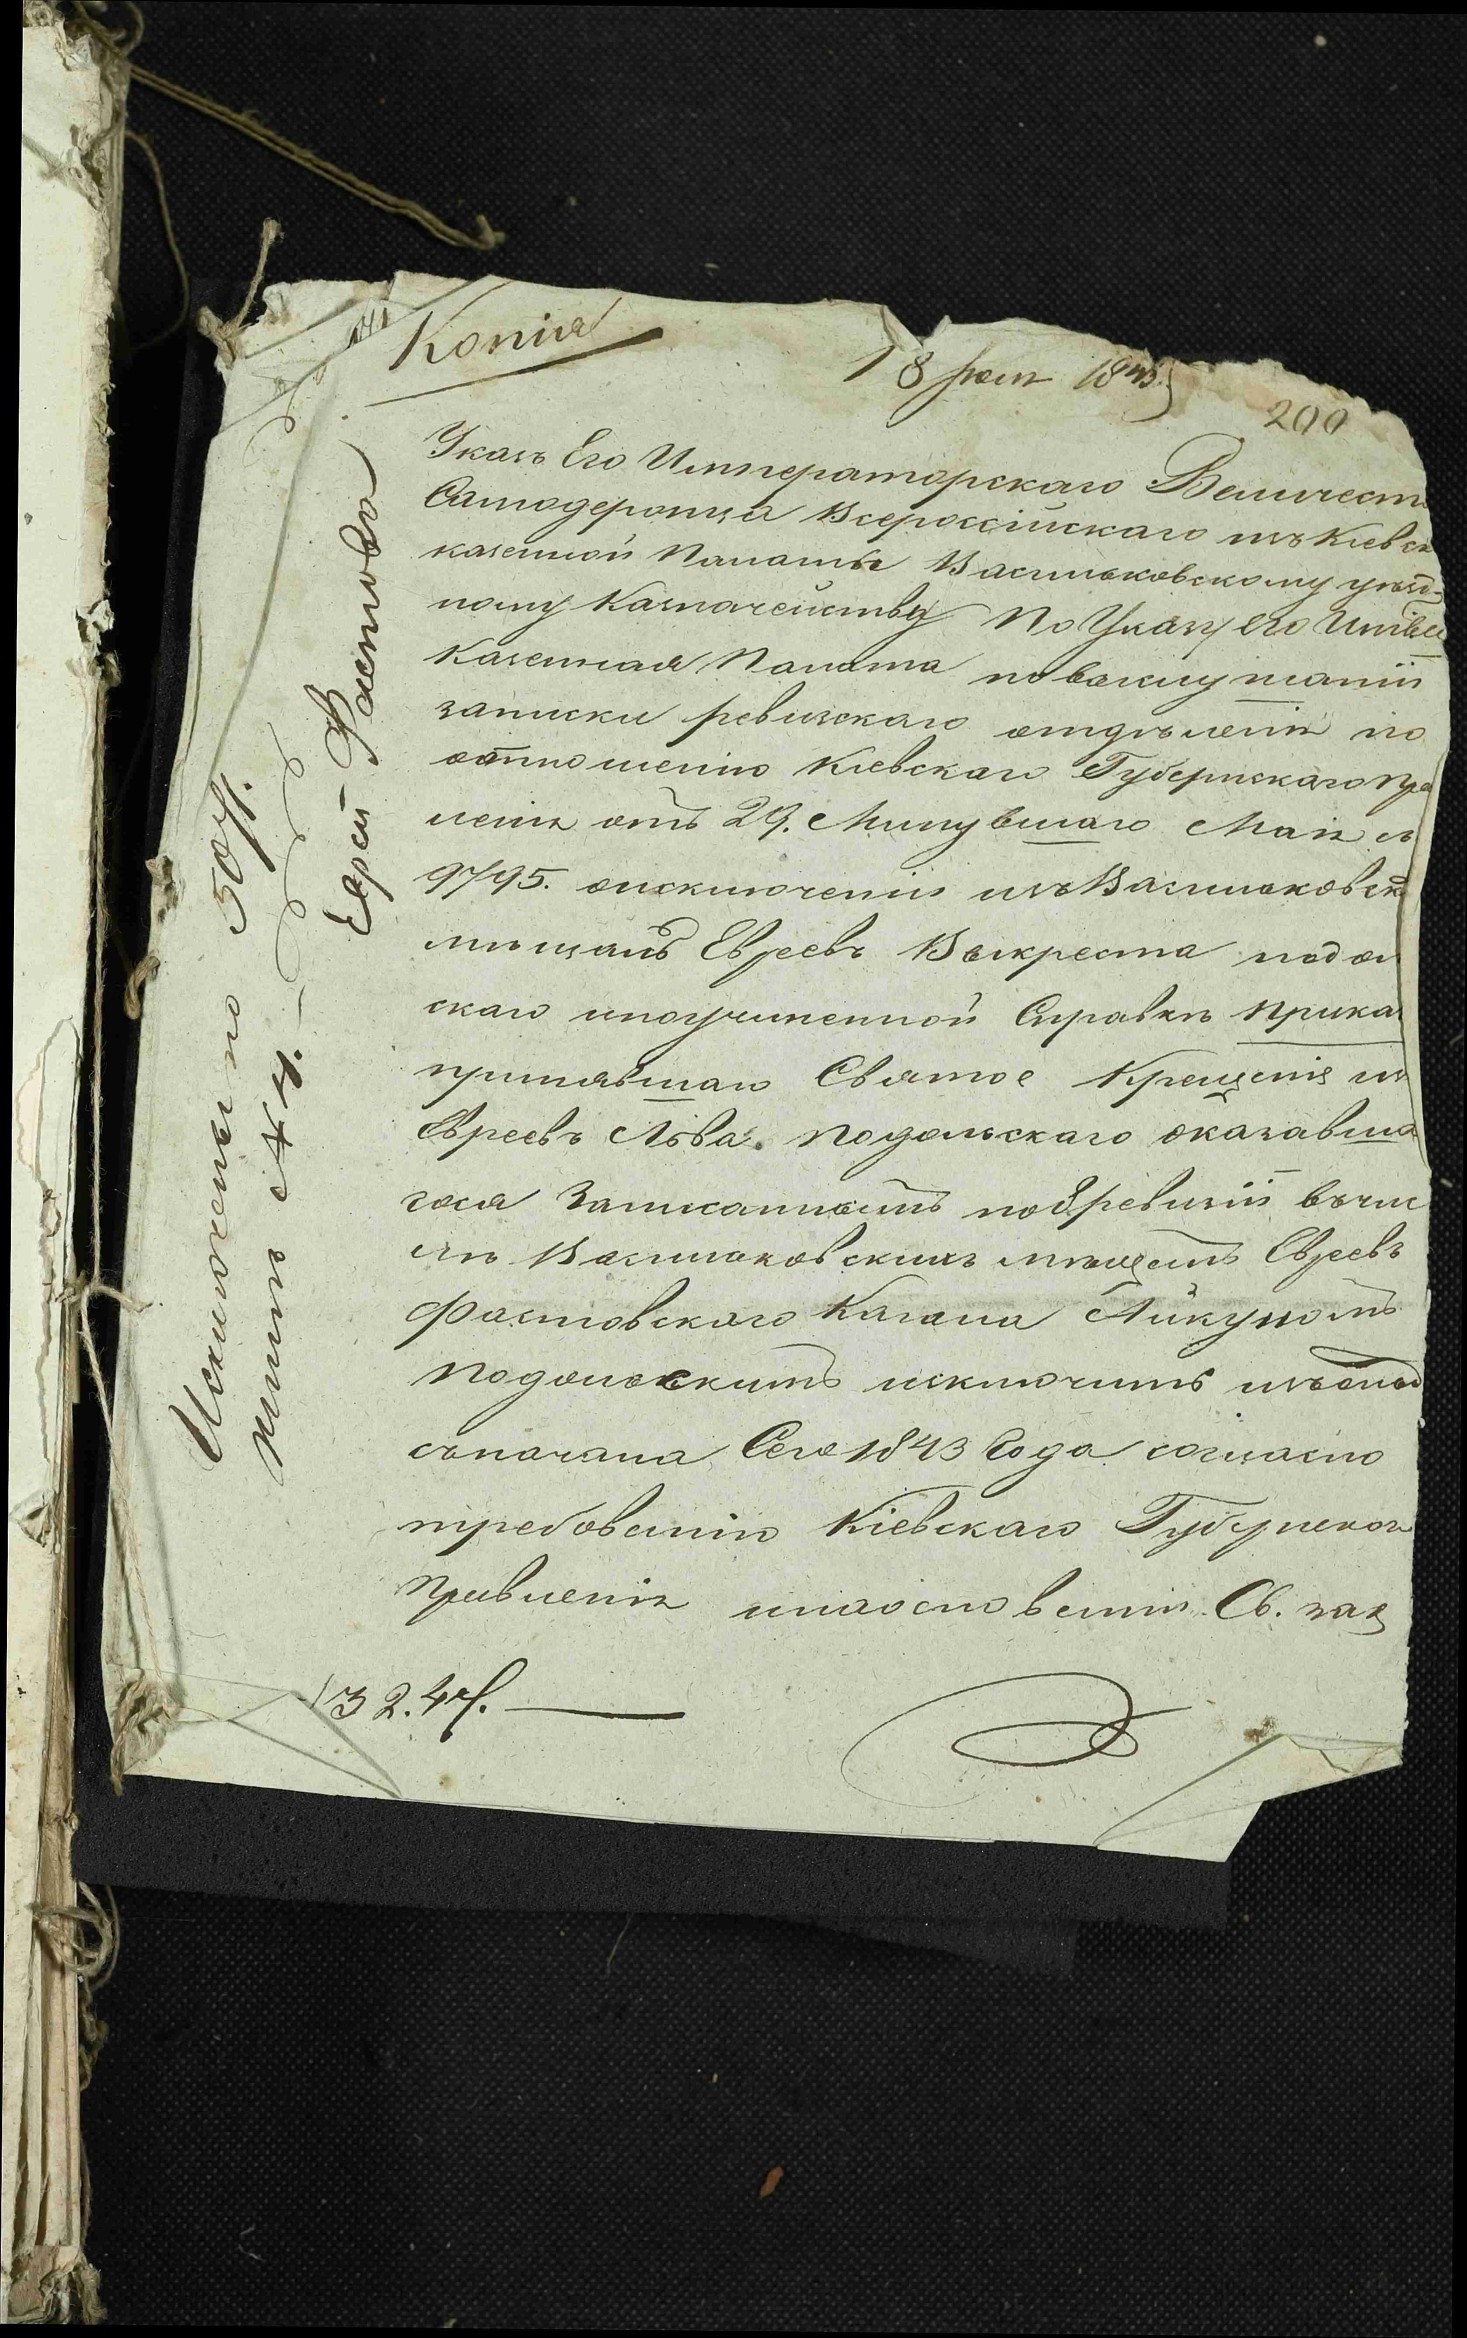 Копія
18 Іюля 1843
200
Указъ Его Императорскаго Величест
Самодержца Всероссійскаго изъ Кіевск
казенной Палаты Васильковскому уѣзд-
ному Казначейству По Указу Его
Казенная Палата по выслушаніи
записки ревизскаго отдѣленія по
отношенію Кіевскаго Губернскаго Пра
ленія отъ 29. Минувшаго Маія
9795. оисключеніи изъ Васильковск
мѣщанъ Евреевъ Выкреста подол
скаго ипоучиненной Справкѣ Прика
принявшаго Святое Крещеніе из
Евреевъ Льва Подольскаго оказавша
гося Записаннымъ по 8 ревизіи вчис
лѣ Васильковскихъ мѣщанъ Евреевъ
Фастовскаго Кагала Айкуномъ
Подольскимъ исключить изъ оклад
съначала Сего 1843 Года согласно
требованію Кіевскаго Губернског
Правленія инаосновании Св. зак
Исключенъ по
книгѣ
Евреи Фастова